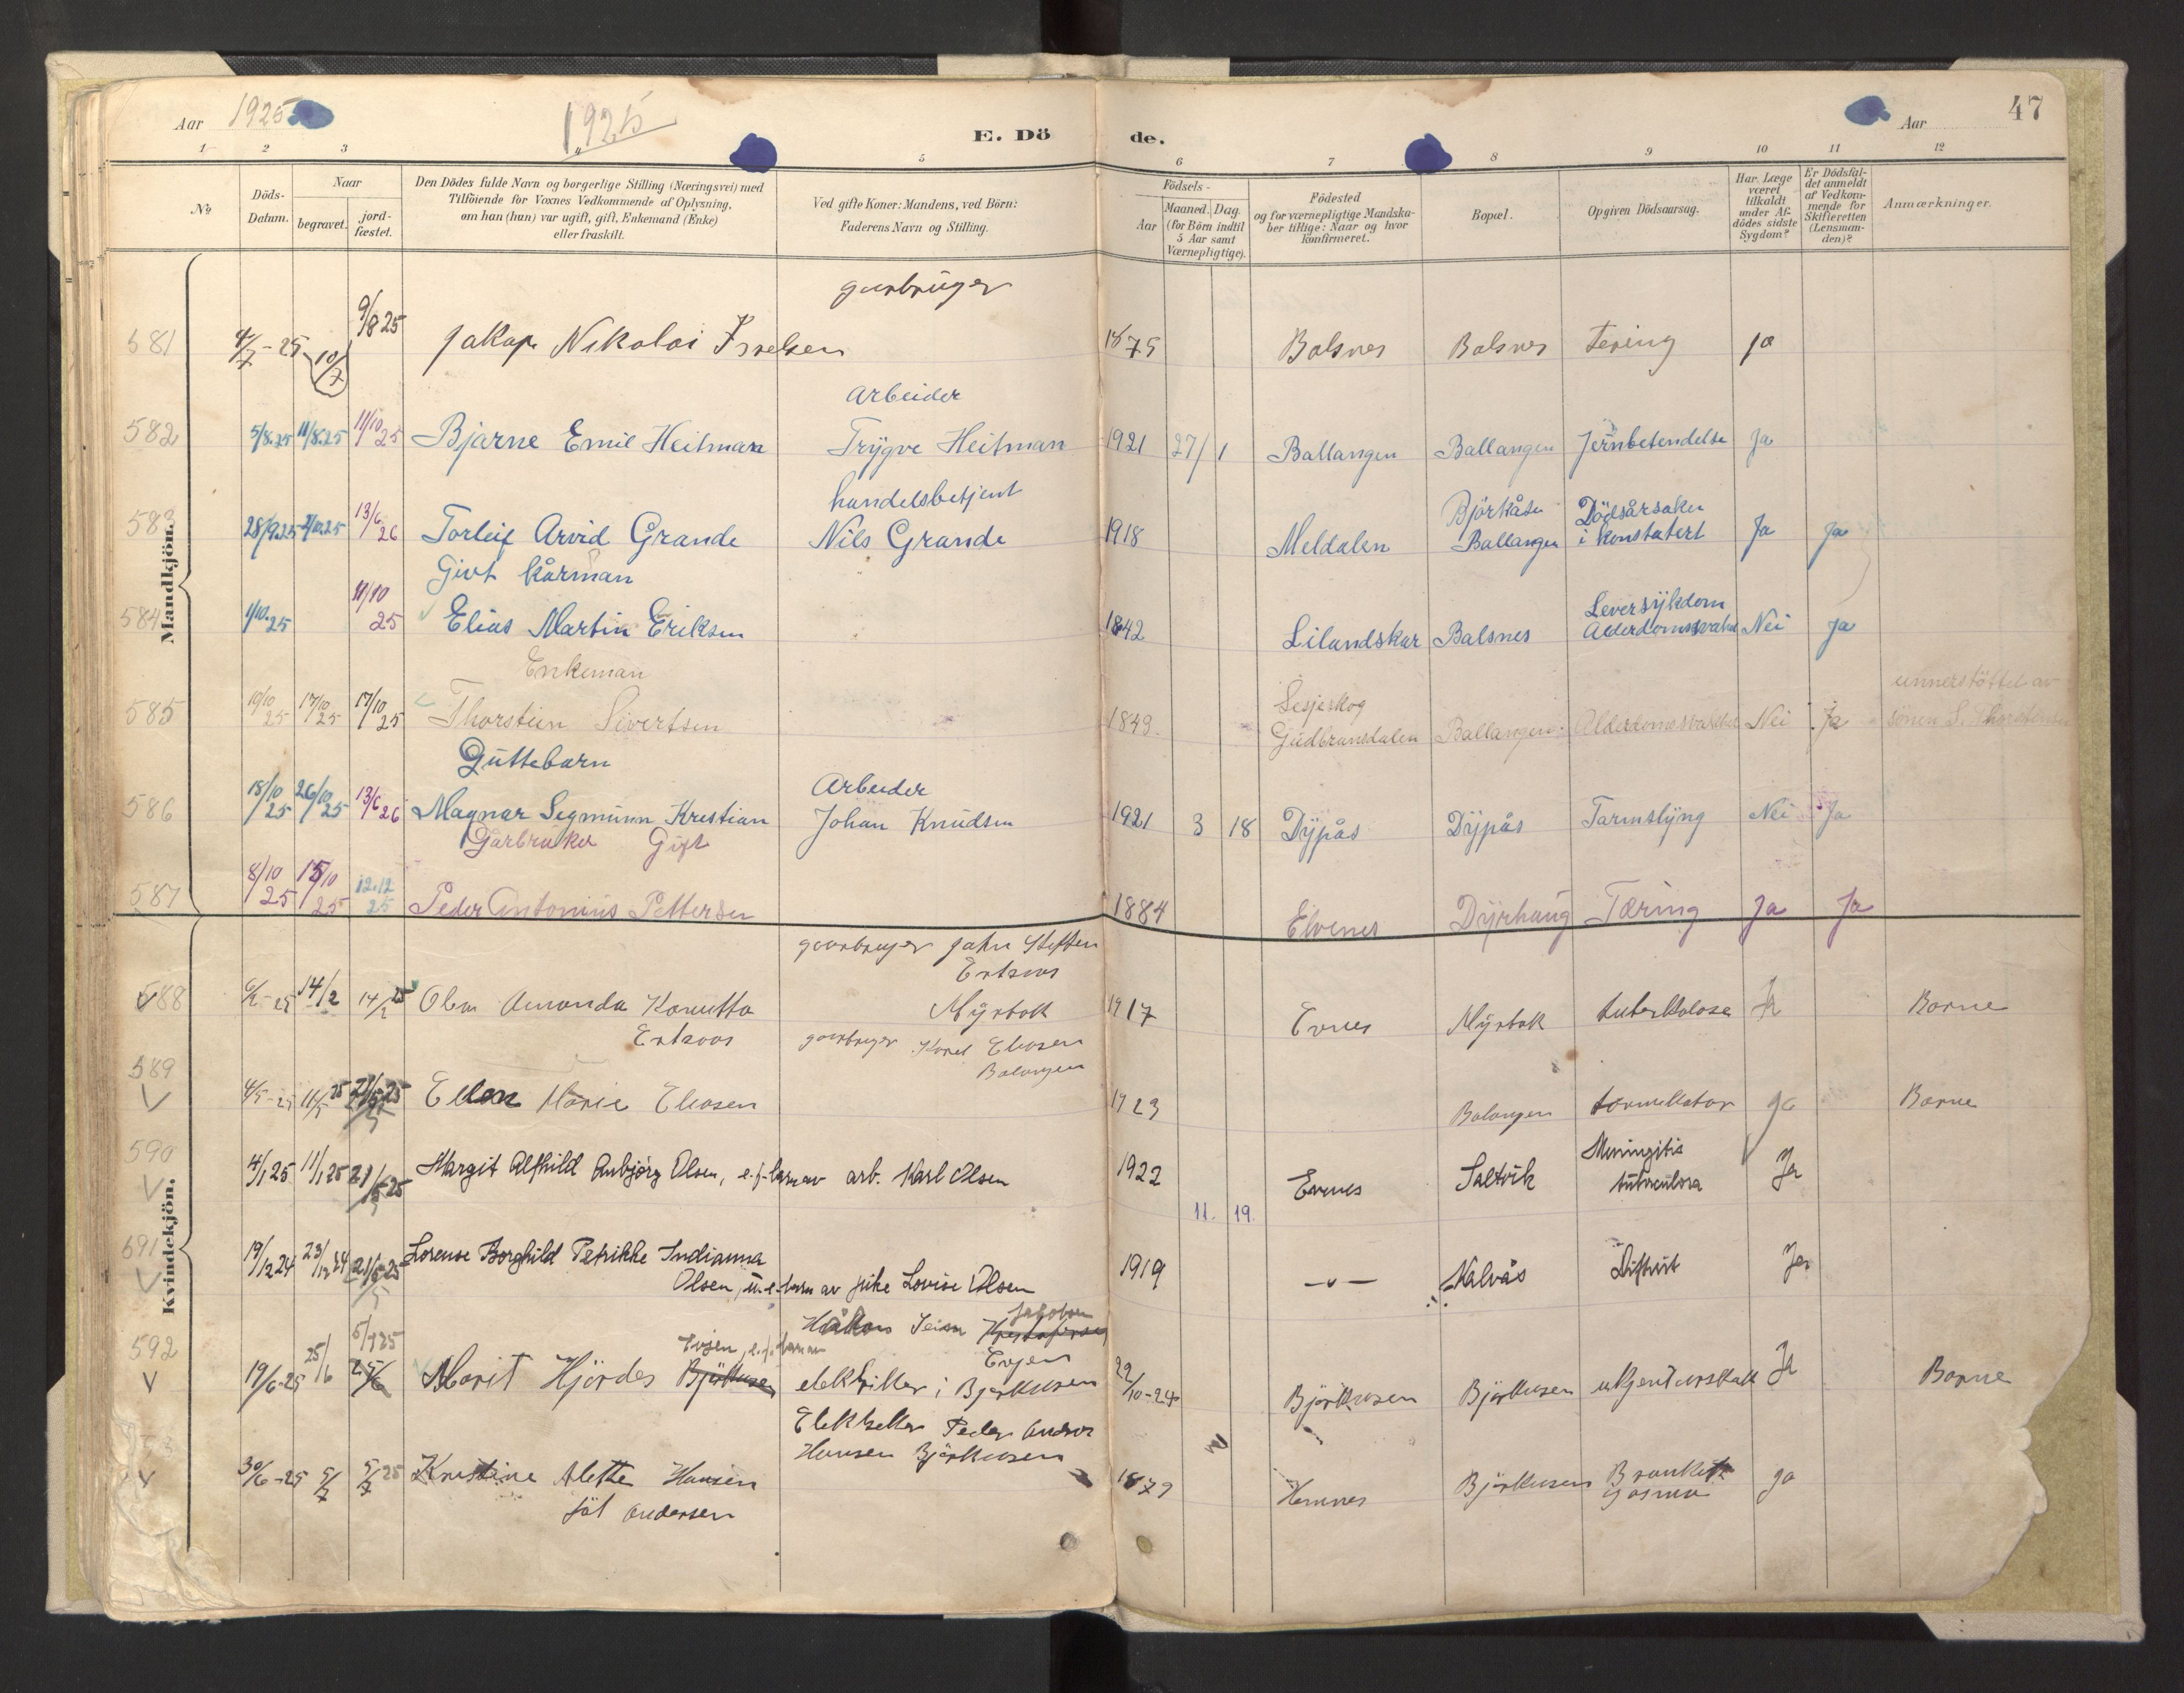 Aar 1925
1925
E. Döde.
Aar
47
1 2 3 4 5 6 7 8 9 10 11 12
№
Döds-Datum.
Naar
begravet.
jord-fæstet.
Den Dödes fulde Navn og borgerlige Stilling (Næringsvei) med
Tilföiende for Voxnes Vedkommende af Oplysning,
om han (hun) var ugift, gift, Enkemand (Enke)
eller fraskilt.
Ved gifte Koner: Mandens, ved Börn:
Faderens Navn og Stilling.
Födsels-
Aar
Maaned. Dag.
(for Börn indtil
5 Aar samt
Værnepligtige).
Födested
og for værnepligtige Mandska-
ber tillige: Naar og hvor
konfirmeret.
Bopæl.
Opgiven Dödsaarsag.
Har Læge
været
tilkaldt
under Af-
dödes sidste
Sygdom?
Er Dödsfal-
det anmeldt
af Vedkom-
mende for
Skifteretten
(Lensman-
den)?
Anmærkninger.
Mandkjön.
gaarbruger
581 4/7-25 10/7 9/8 25 Jakop Nikolai 1875 Balsnes Balsnes tering ja
Arbeider
582 5/8.25 11/8.25 11/10 25 Bjarne Emil Heitman Trygve Heitman 1921 27/1 Ballangen Ballangen Ja
handelsbetjent
Björkåsen Dödsårsaken
583 28/9.25 2/10.25 13/6 26 Torleif Arvid Grande Nils Grande 1918 Meldalen Ballangen i konstatert Ja Ja
Givt kårman
Leversykdom
584 1/10.25 11/10 25 Elias Martin Eriksen 1842 Lilandskar Balsnes Nei Ja
Enkeman
Lesjeskog unnerstöttet av
585 10/10 25 17/10 25 17/10 25 Thorstein Sivertsen 1849 Gudbransdalen Ballangen Alderdomssvakhet Nei Ja sönen S. Thorstensen
Guttebarn
Arbeider
586 18/10 25 26/10 25 13/6 26 Magnar Segmunn Kristian Johan Knudsen 1921 3 18 Dypås Dypås Tarmslyng Nei Ja
Garbruker Gift
587 8/10 25 15/10 25 12.12 25 Peder Antonius Pettersen 1884 Elvenes Dyrhaug Tæring Ja Ja
Kvindekjön.
gaarbruger John Steffen
Entzoos
588 14/2 14/2 25 Olea Amanda 1917 Evnes Myrbak tuberkolose Ja Barne
Entzoos Myrbak
gaarbruger Karel Eliasen
Balangen
589 4/5-25 11/5 25 21/5-25 Ellen Marie Eliasen 1923 Balangen ja Barne
Meningitis
590 4/1 25 11/1 25 21/5-25 Margit Alfhild Anbjörg Olsen, e.f.barn av arb. Karl Olsen 1922 Evnes Saltvik tuberculosa Ja
11. 19.
591 19/12 24 23/12 24 21/5-25 Lorense Borghild Petrikke Indianna 1919 - v - Kalvås Difterit Ja
Olsen, u.e.barn av pike Lovise Olsen
Håkon Jakobsen
Evjen, e.f.barn av Evjen
592 19/6-25 25/6 5/7 25 Marit Hjördes elektriker i Björkaasen 22/10-24 Björkaasen Björkaasen ukjent aarsak Ja Barne
Elektriker Peder Andreas
Hansen Björkaasen
30/6-25 5/7 5/7 25 Kristine Alette Hansen 1879 Hemnes Björkaasen ja
föt Andersen